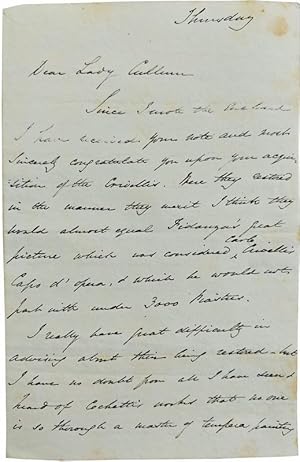 Thursday
Dear Lady Cullum
Since I wrote the
I have received your note and most
sincerely congratulate you upon your acqui-
sition of the Crivellis. Were they restored
in the manner they merit I think they
would almost equal Fidanza's great
picture which was considered, Carlo Crivelli's
Capo d'opera, & which he would not
part with under 3000 Piastres.
I really have great difficulty in
advising about this being restored - but
I have no doubt from all I have seen &
heard of Cochetti's works that no one
is so thorough a master of tempera painting